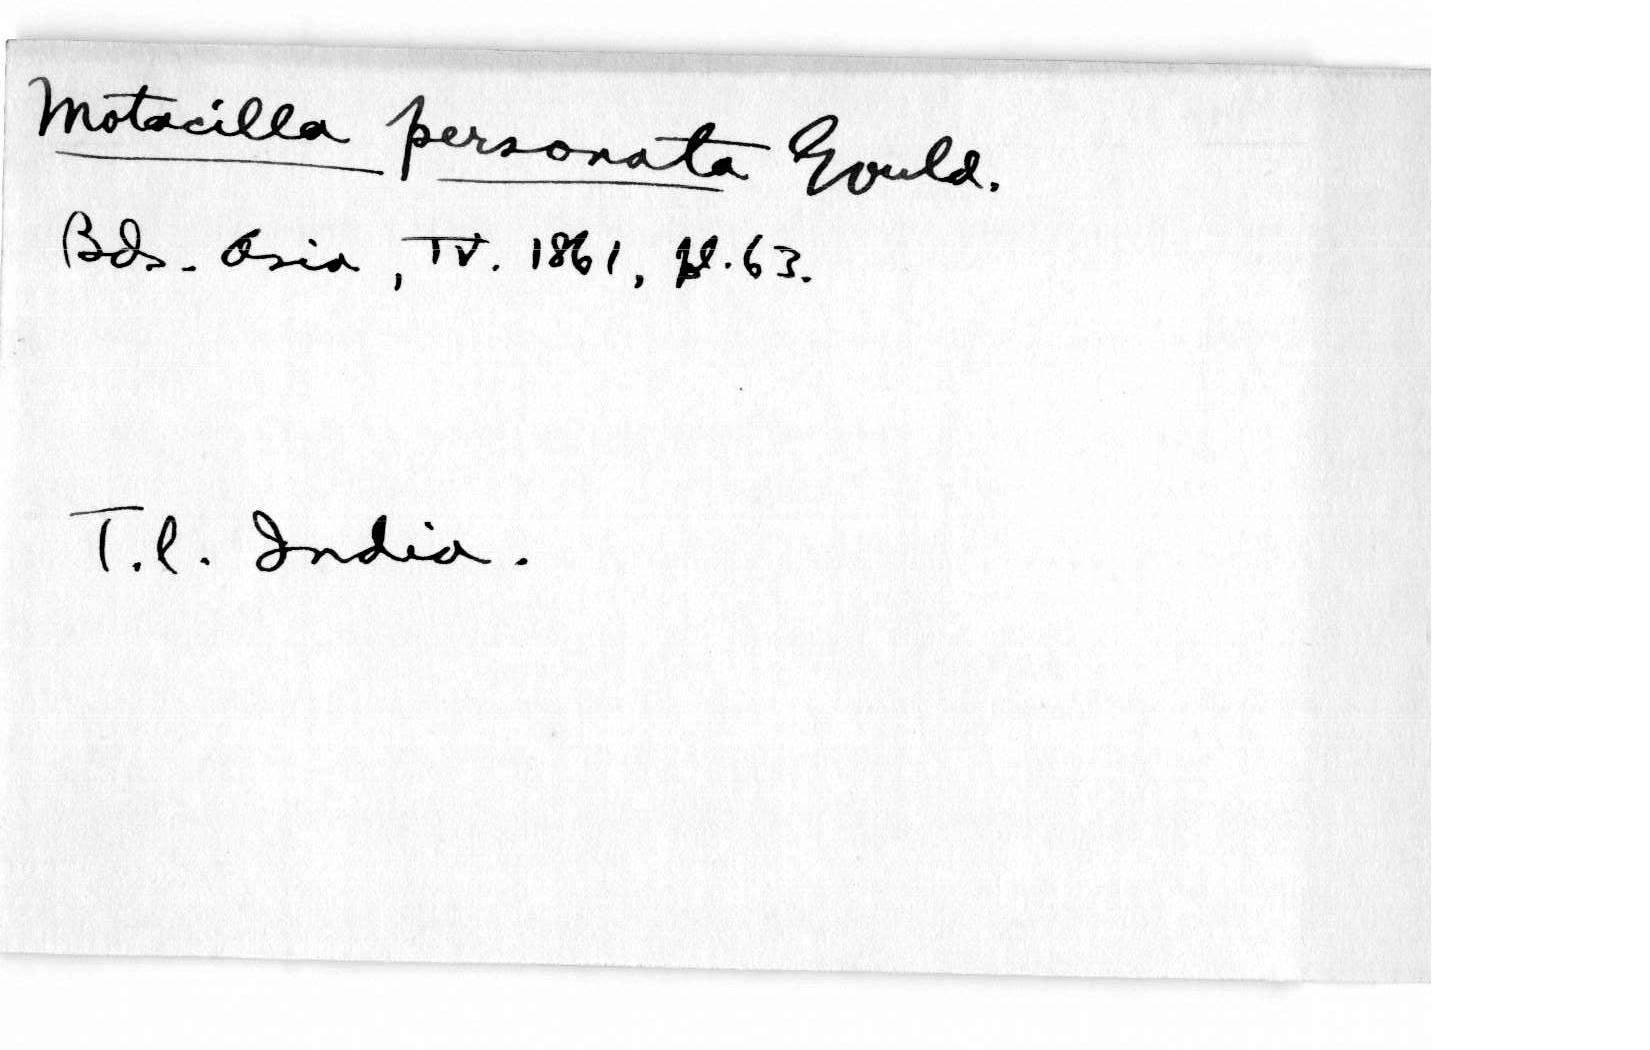 Motacilla personata Gould.
Bds. Asia, IV. 1861, pl. 63.
T.l. India.